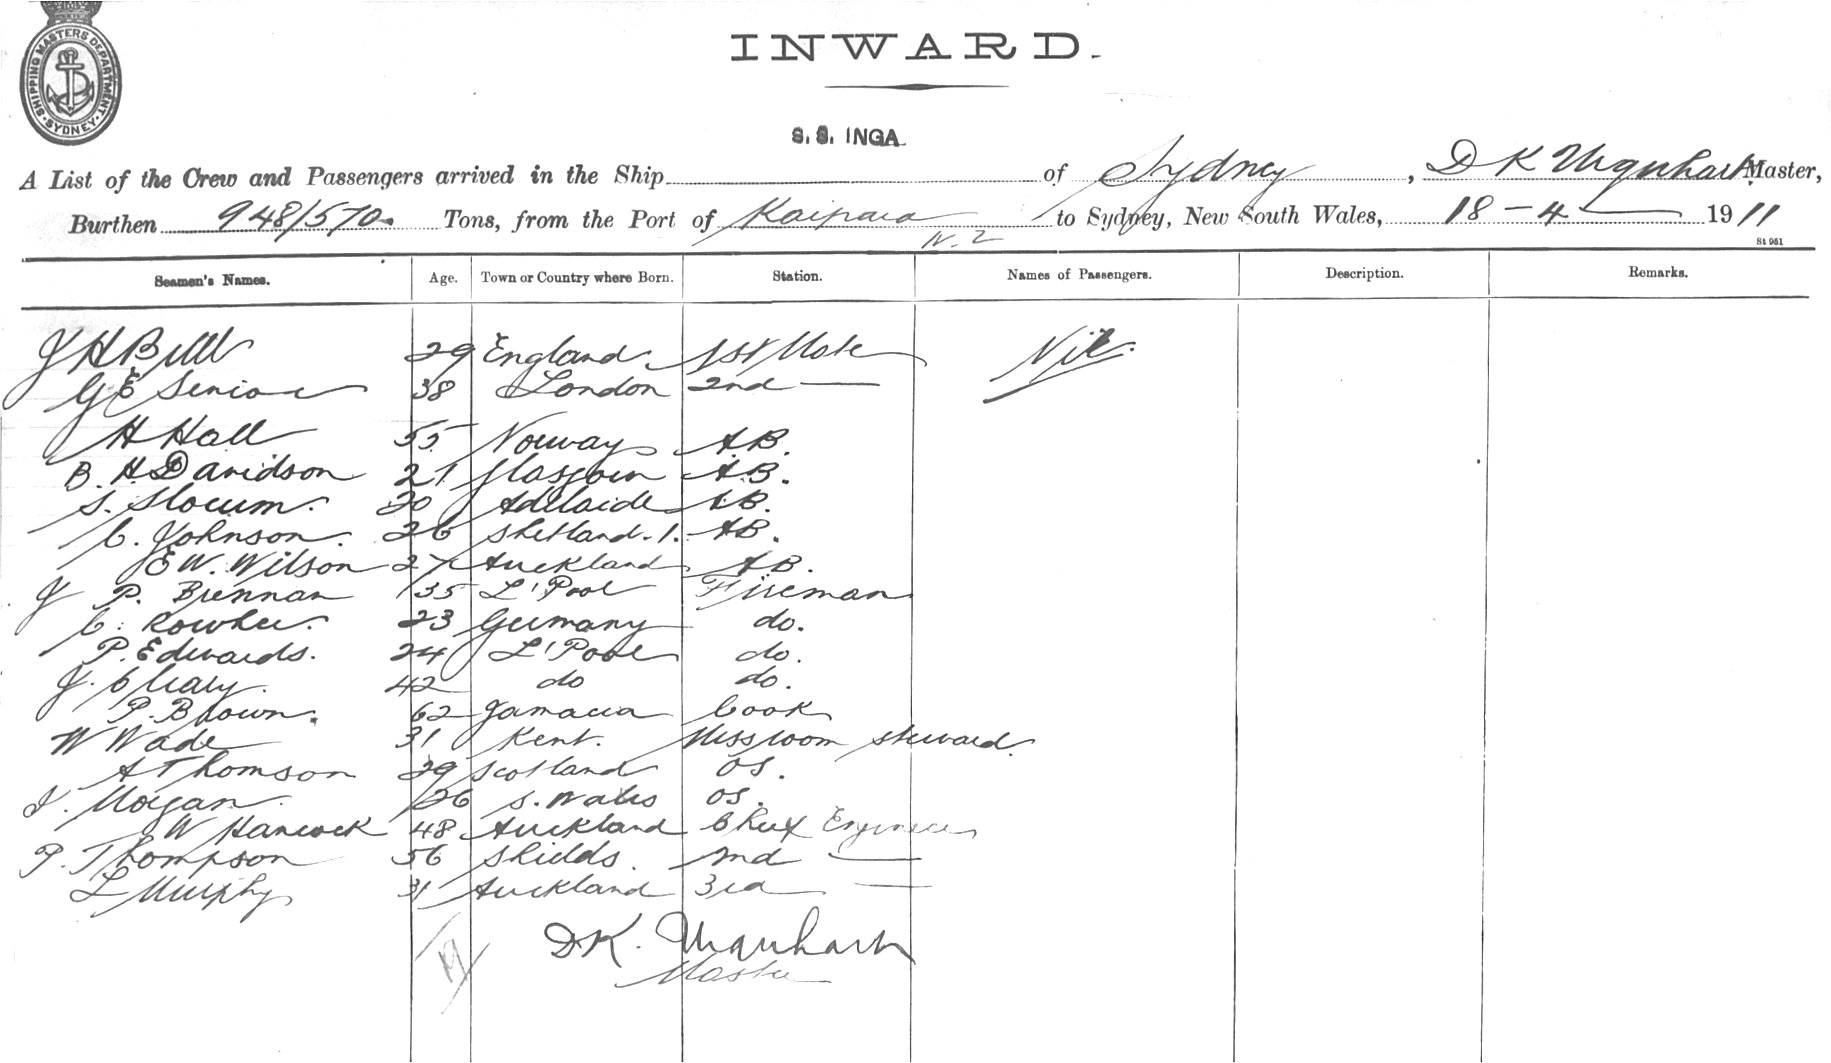 SHIPPING MASTERS DEPARTMENT · SYDNEY ·
INWARD.
S. S. INGA
A List of the Crew and Passengers arrived in the Ship of Sydney, D K Urquhart Master,
Burthen 948/570 Tons, from the Port of Kaipara to Sydney, New South Wales, 18 - 4 - 1911
N. Z
St 961
Seamen's Names. Age. Town or Country where Born. Station. Names of Passengers. Description. Remarks.
J H Bull 29 England 1st Mate Nil.
G E Senior 38 London 2nd —
H Hall 55 Norway A.B.
B. H. Davidson 21 Glasgow A.B.
S. Slocum. 30 Adelaide AB.
C. Johnson. 26 Shetland. I. AB.
E W. Wilson 27 Auckland AB.
J P. Brennan 35 L'Pool Fireman
C. 23 Germany do.
P. Edwards. 24 L'Pool do.
J. 42 do do.
P. Brown. 62 Jamacia Cook
W Wade 31 Kent. Messroom steward.
A Thomson 29 Scotland OS.
J. Morgan 26 S. Wales OS.
W Hancock 48 Auckland Chief Engineer
P. Thompson 56 Shields. 2nd —
L Murphy 31 Auckland 3rd —
D K. Urquhart
Master